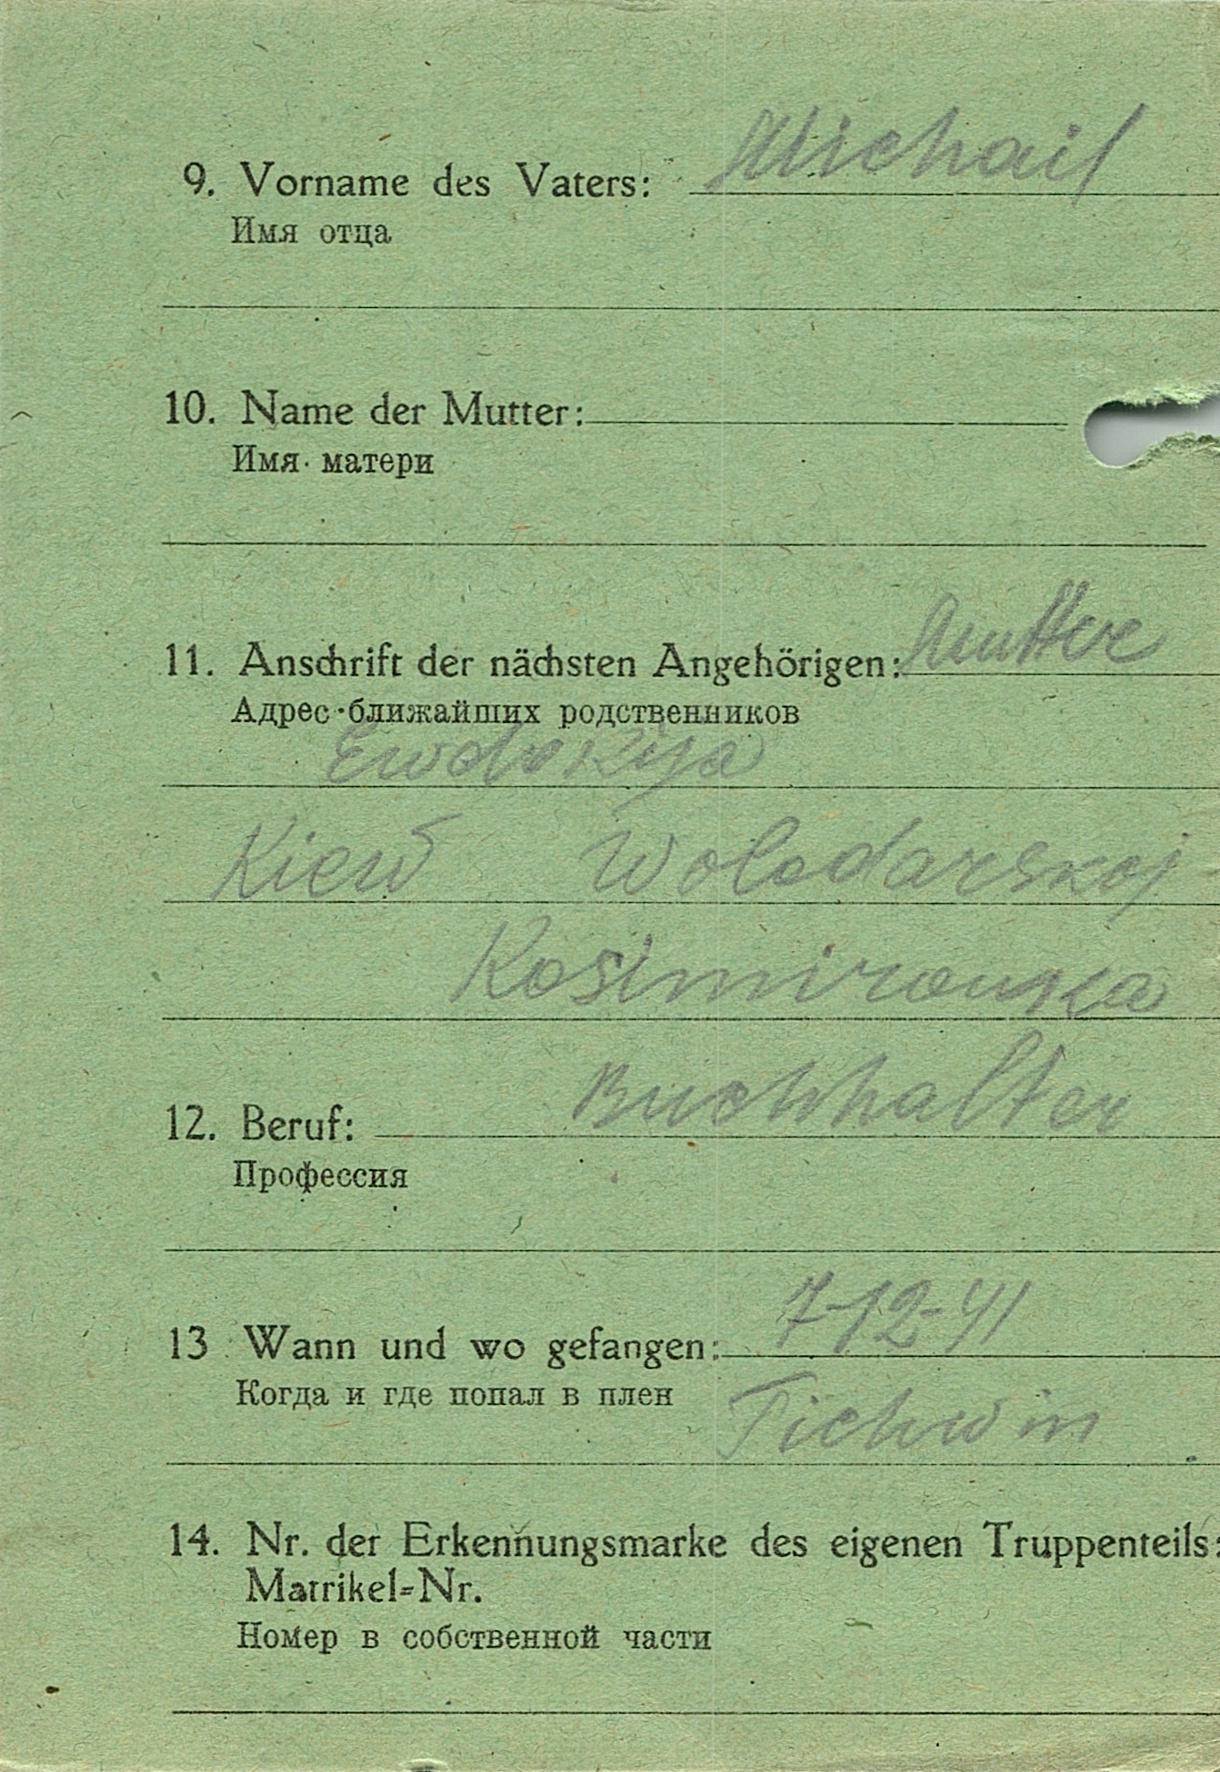 9. Vorname des Vaters: Michail
Имя отца
10. Name der Mutter:
Имя матери
11. Anschrift der nächsten Angehörigen: Mutter
Адрес ближайших родственников
Ewdokija
Kiew Wolodarskoj
Kosimirowska
12. Beruf: Buchhalter
Профессия
13 Wann und wo gefangen: 7-12-41
Когда и где попал в плен
Tichwin
14. Nr. der Erkennungsmarke des eigenen Truppenteils:
Matrikel-Nr.
Номер в собственной части